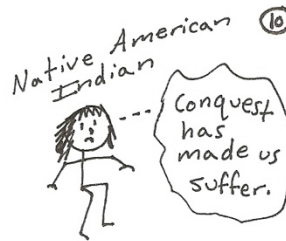 10
Native American
Indian
Conquest
has
made us
suffer.